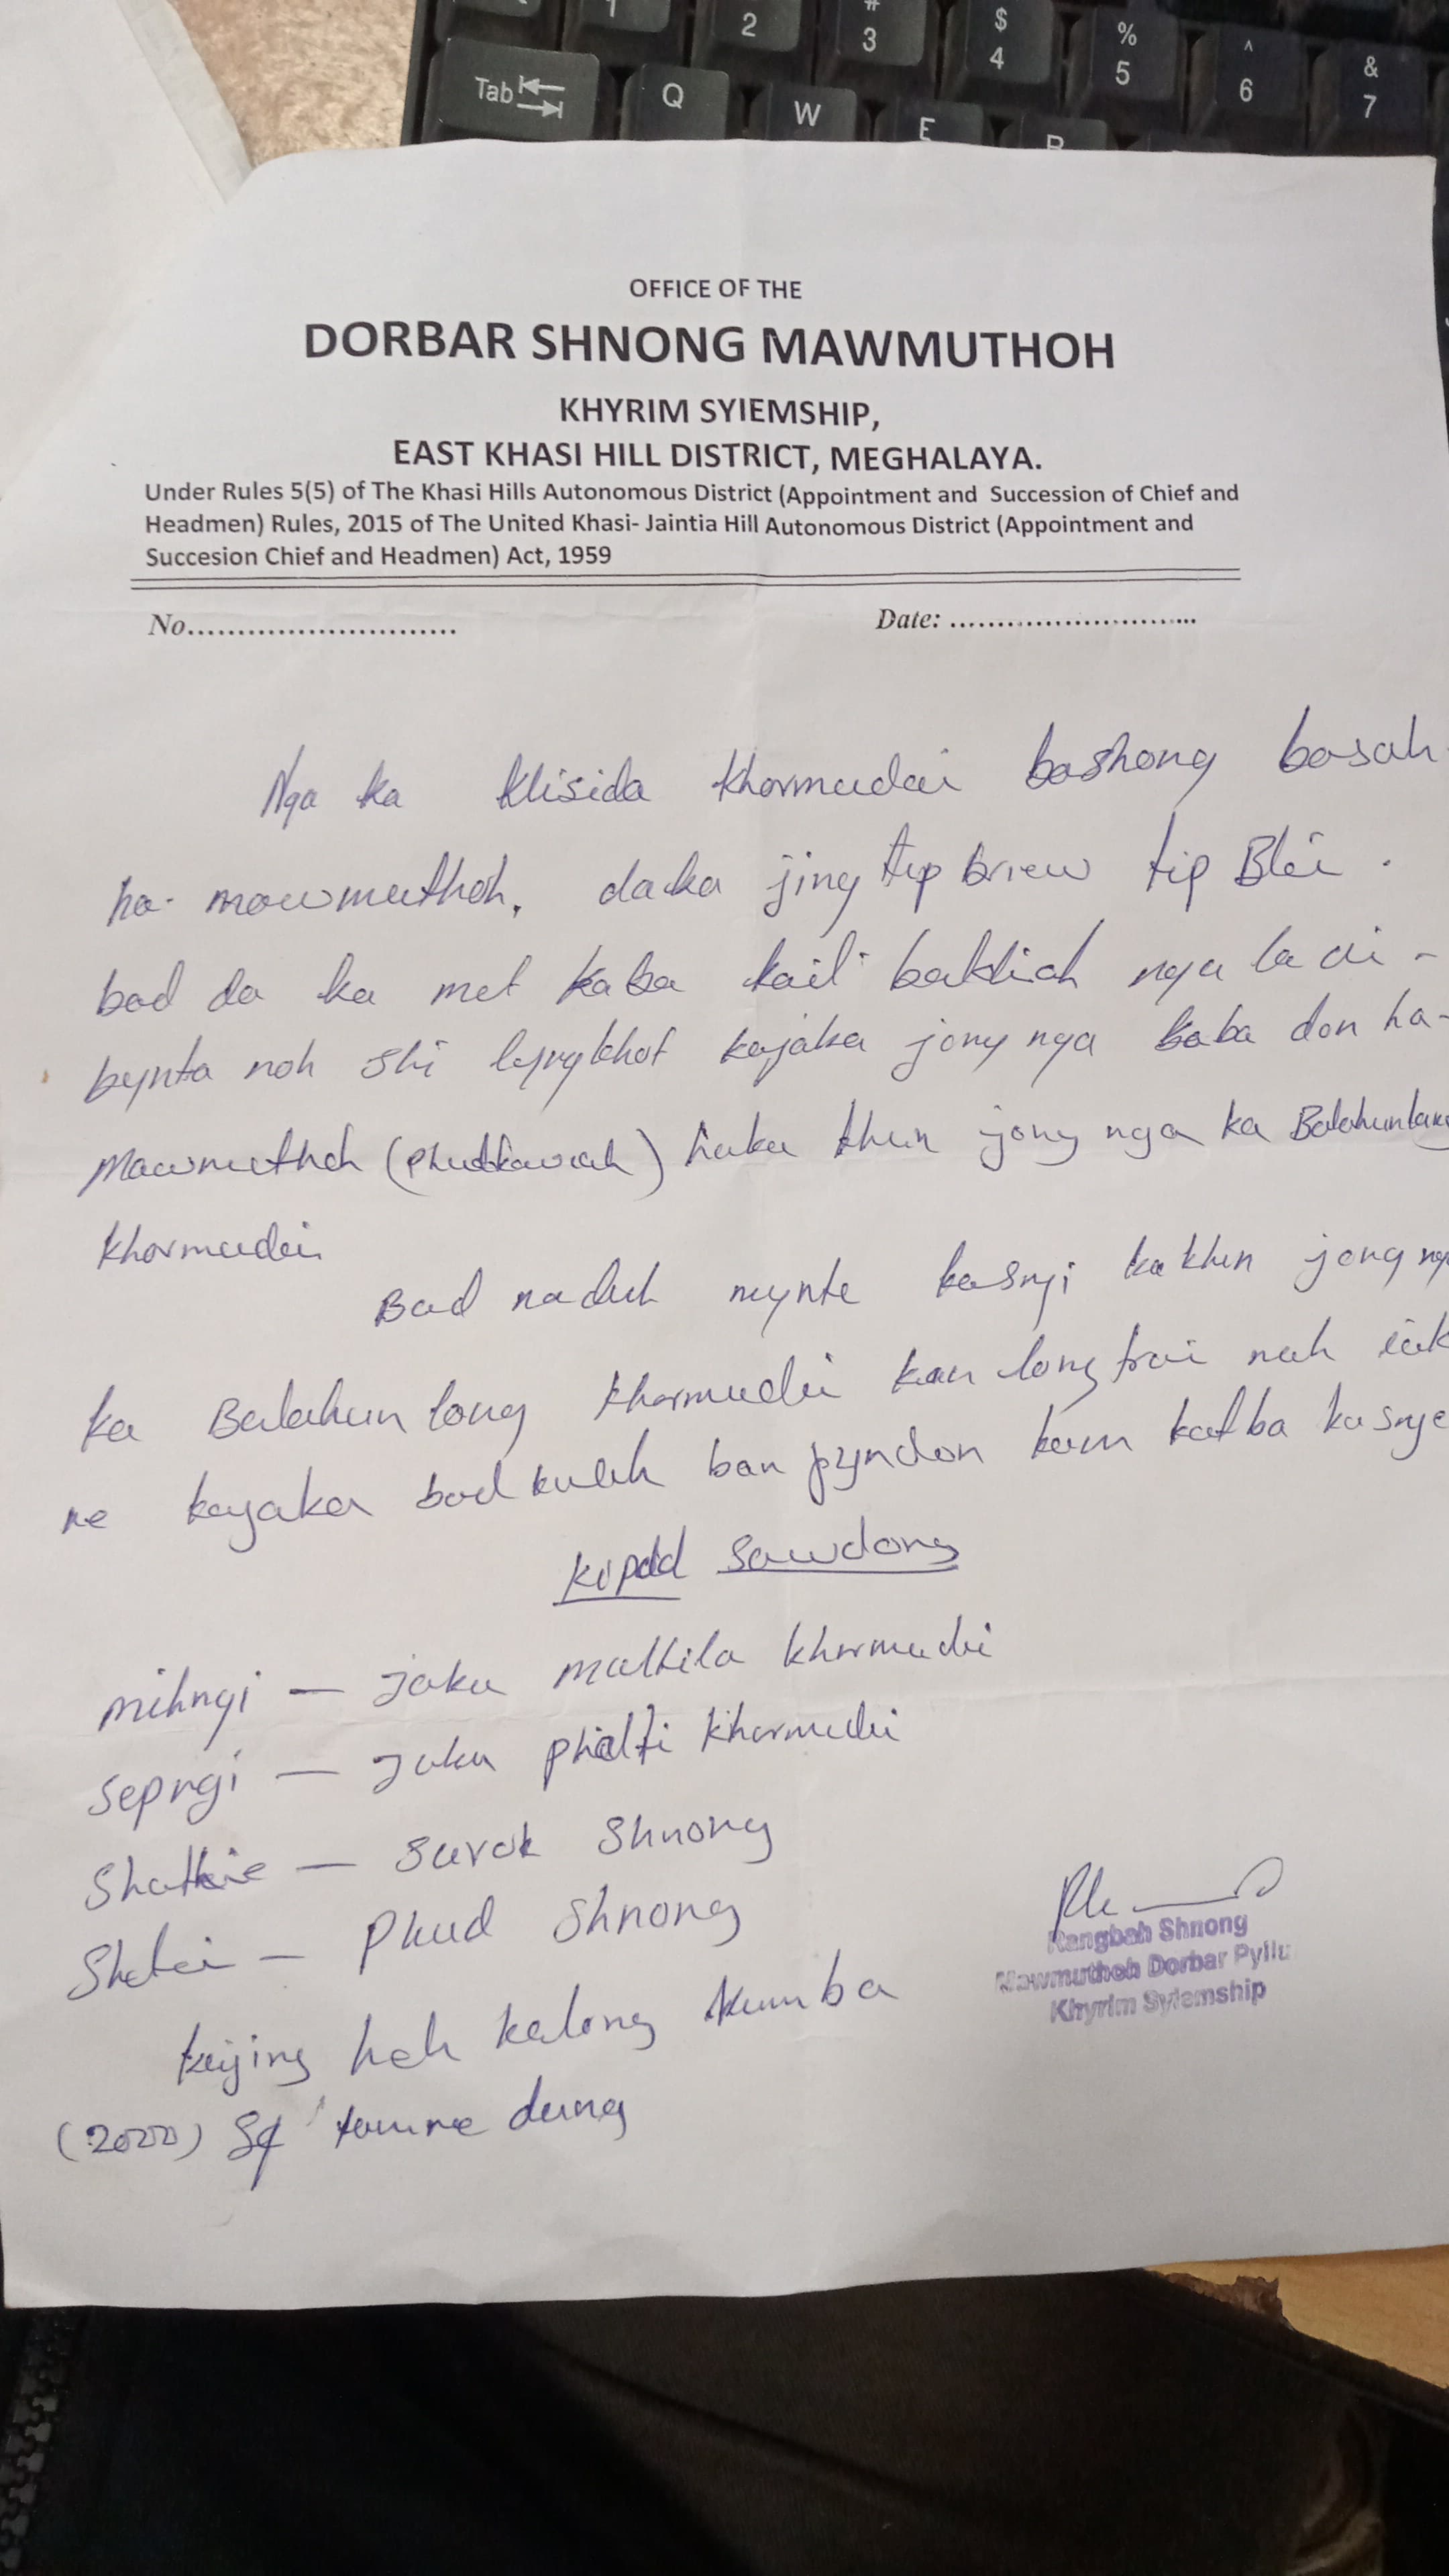 Tab Q W E R 1 2 # 3 $ 4 % 5 ^ 6 & 7
OFFICE OF THE
DORBAR SHNONG MAWMUTHOH
KHYRIM SYIEMSHIP,
EAST KHASI HILL DISTRICT, MEGHALAYA.
Under Rules 5(5) of The Khasi Hills Autonomous District (Appointment and Succession of Chief and
Headmen) Rules, 2015 of The United Khasi- Jaintia Hill Autonomous District (Appointment and
Succesion Chief and Headmen) Act, 1959
No........................... Date: .........................
Nga ka Klisida Khormudai bashong basah
ha mawmuthoh, daka jing tip briew tip Blei.
bad da ka met kaba koit bakhiah nga la ai-
bynta noh shi lyngkhot kajaka jong nga kaba don ha-
Mawmuthoh (Phudkawiah) haka khun jong nga ka
Khormudai
Bad naduh mynta kasngi kakhun jong
ka Balahun tong Khormudai kan long trai noh
ne kajaka bad kulah ban pyndon kam katba ka
Kipud Sawdong
mihngi — Jaka maltila khormudai
Sepngi — Jaka Khormudai
Shathie — Surok Shnong
Shatei — Phud Shnong
kajing heh kalong kumba
(2000) Sq tamne dung
Rangbah Shnong
Mawmuthoh Dorbar Pyllu
Khyrim Syiemship